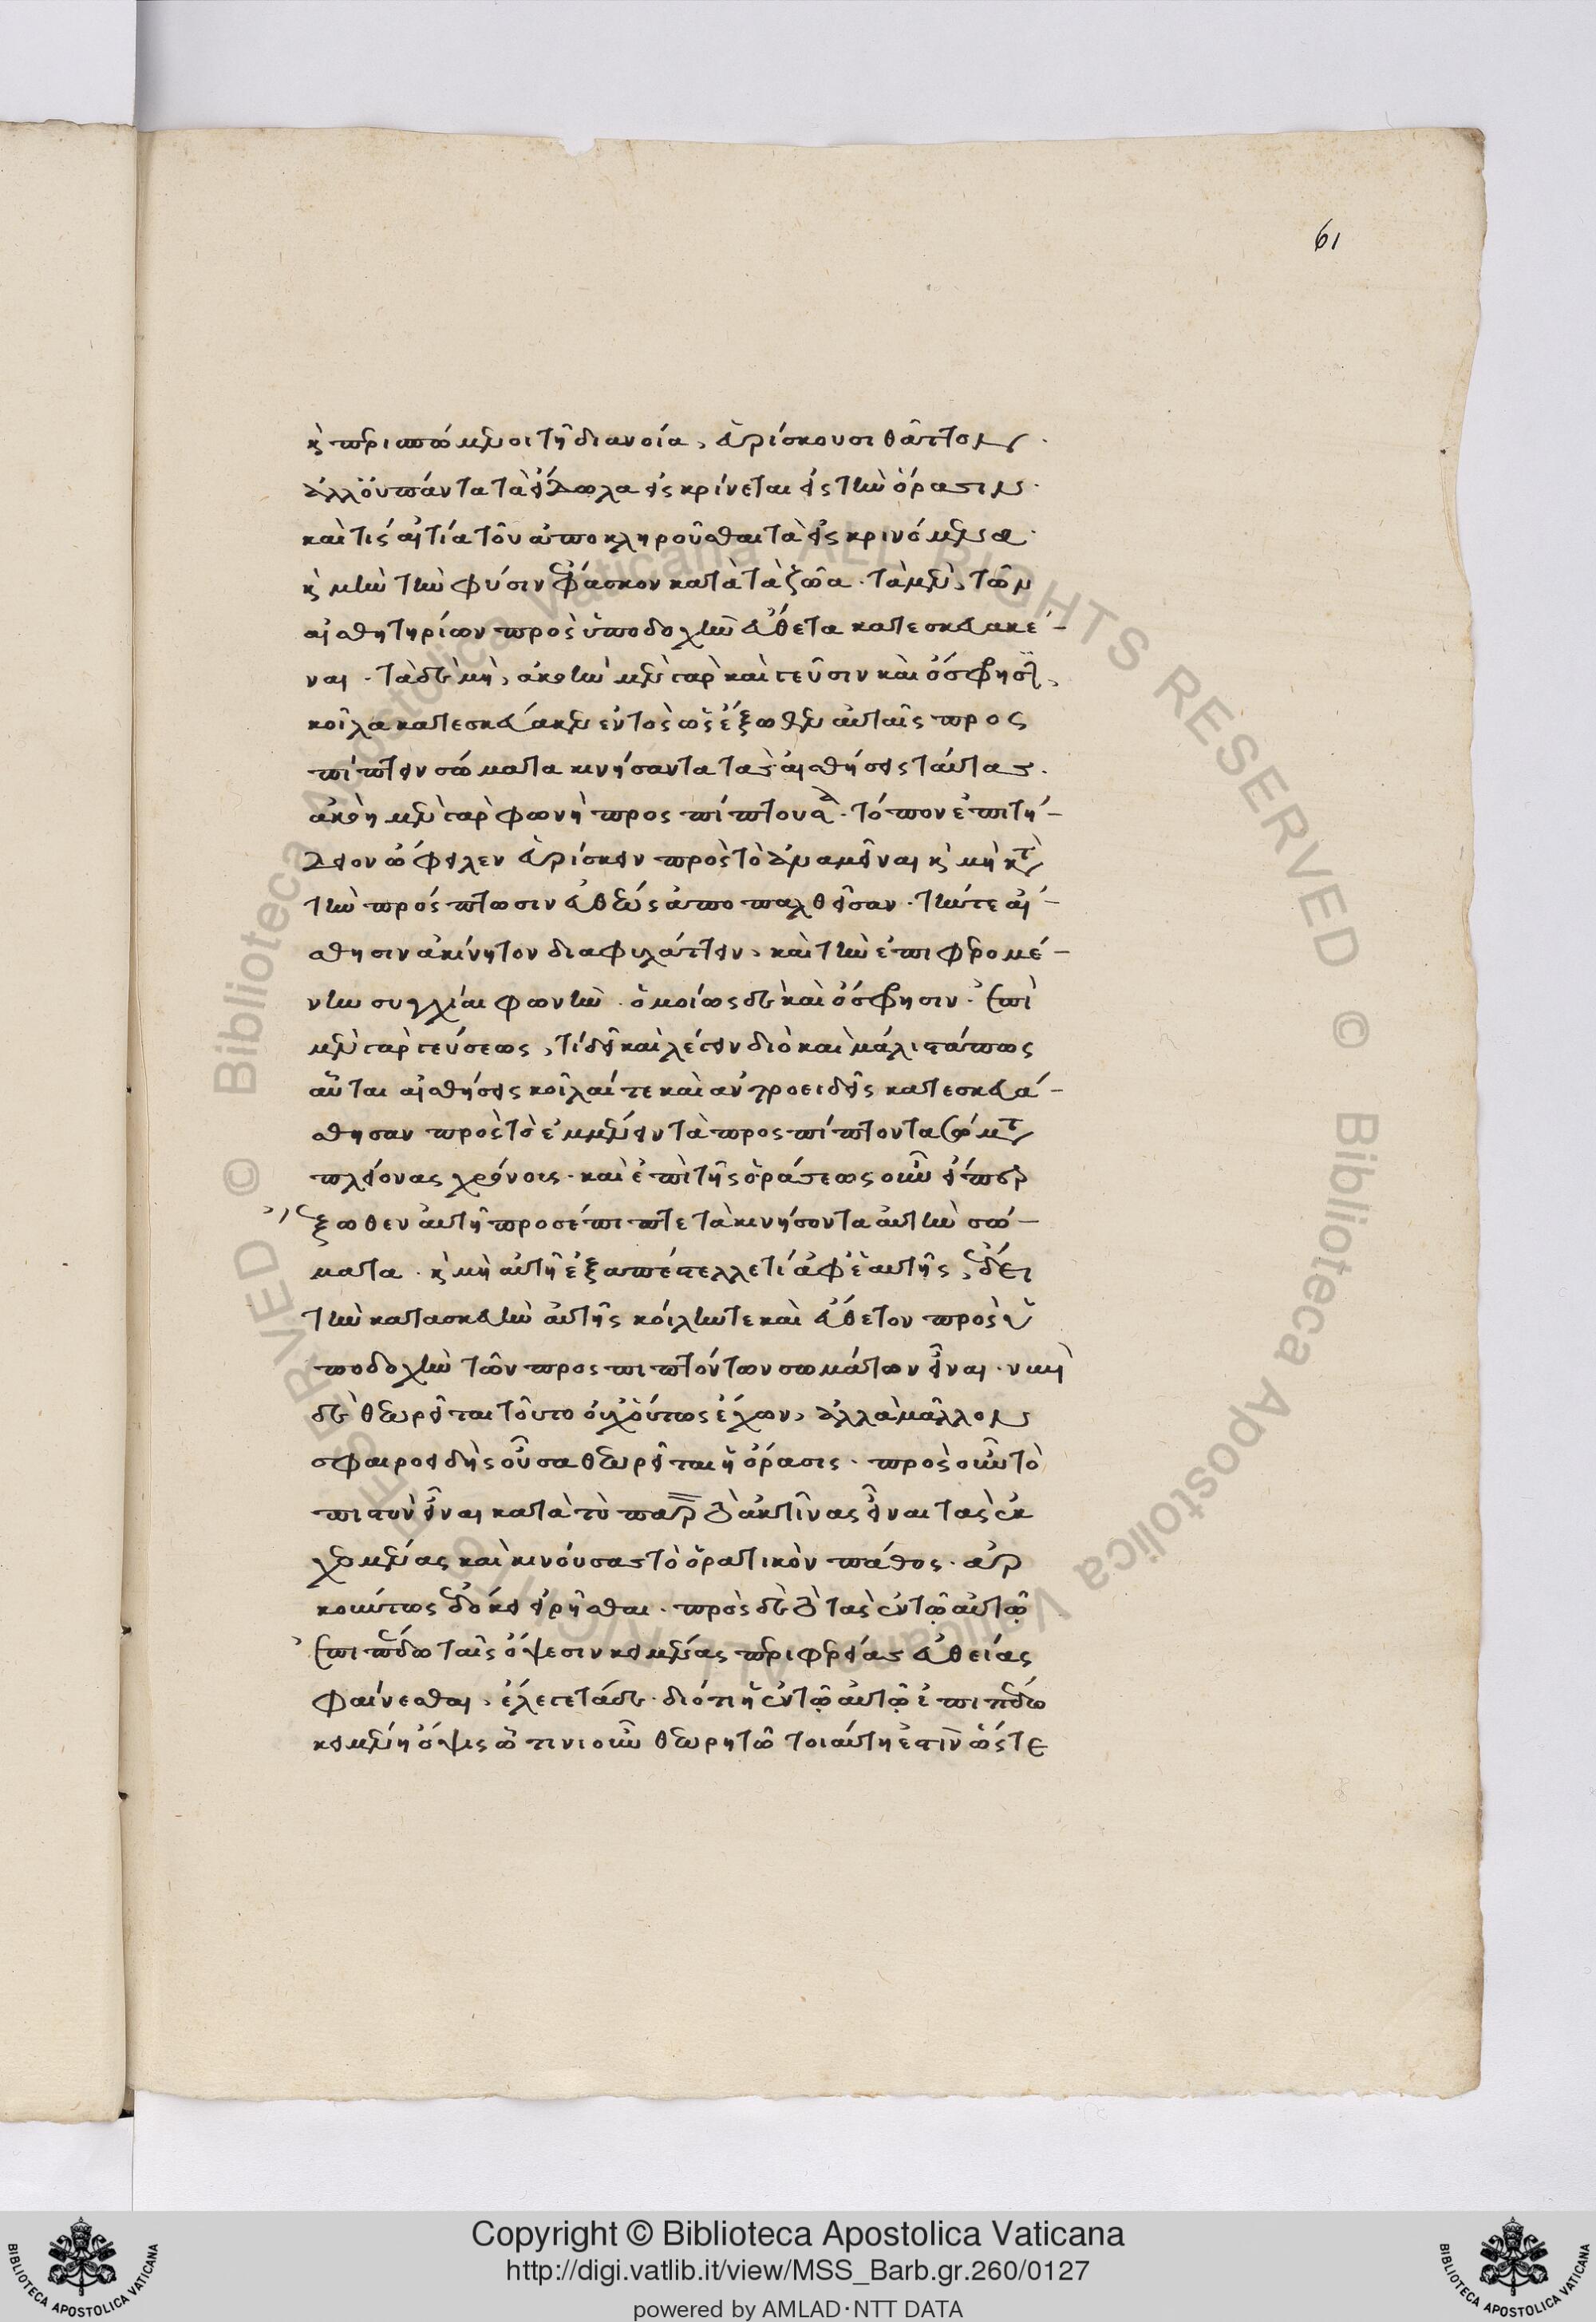 61
καὶ περισπώμενοι τῇ διανοίᾳ, εὑρίσκουσι θᾶττον.
ἀλλ' οὐ πάντα τὰ εἴδωλα εἰσκρίνεται εἰς τὴν ὅρασιν.
καὶ τίς αἰτία τοῦ ἀποκληροῦσθαι τὰ εἰσκρινόμενα.
καὶ μὴν τὴν φύσιν ἔφασκον κατὰ τὰ ζῶα. τὰ μὲν, τῶν
αἰσθητηρίων πρὸς ὑποδοχὴν εὔθετα κατεσκευακέ-
ναι. τὰ δὲ μὴ, ἀκοὴν μὲν γὰρ καὶ γεῦσιν καὶ ὄσφρησιν,
κοῖλα κατεσκεύακεν ἐντὸς ὡς ἔξωθεν αὐταῖς προς
πίπτειν σώματα κινήσαντα τὰς αἰσθήσεις ταύτας.
ἀκοῇ μὲν γὰρ φωνὴ προς πίπτουσα. τόπον ἐπιτή-
δειον ὤφειλεν εὑρίσκειν πρὸς τὸ ἀναμεῖναι καὶ μὴ κατὰ
τὴν πρόσπτωσιν εὐθέως ἀποπαλθεῖσαν. τήν τε αἴ-
σθησιν ἀκίνητον διαφυλάττειν, καὶ τὴν ἐπιφερομέ-
νην συγχέαι φωνὴν. ὁμοίως δὲ καὶ ὄσφρησιν. ἐπὶ
μὲν γὰρ γεύσεως, τί δεῖ καὶ λέγειν διὸ καὶ μάλιστά πως
αὗται αἰσθήσεις κοῖλαί τε καὶ ἀντροειδεῖς κατεσκευά-
σθησαν πρὸς τὸ ἐμμένειν τὰ προς πίπτοντα σώματα
πλείονας χρόνους. καὶ ἐπὶ τῆς ὁράσεως οὖν εἴπερ
ἔξωθεν αὐτῇ προσέπιπτε τὰ κινήσοντα αὐτὴν σώ-
ματα. καὶ μὴ αὐτὴ ἐξαπέστελλέ τι ἀφ' ἑαυτῆς, ἔδει
τὴν κατασκευὴν αὐτῆς κοίλην τε καὶ εὔθετον πρὸς ὑ
ποδοχὴν τῶν προς πιπτόντων σωμάτων εἶναι. νυνὶ
δὲ θεωρεῖται τοῦτο οὐχ οὕτως ἔχων, ἀλλὰ μᾶλλον
σφαιροειδὴς οὖσα θεωρεῖται ἡ ὅρασις. πρὸς οὖν τὸ
πιστὸν εἶναι κατὰ τὸ παρὸν ὅτι ἀκτῖνας εἶναι τὰς ἐκ
χεομένας καὶ κινούσας τὸ ὁρατικὸν πάθος. αὐτάρ
κως οὕτως ἐδόκει εἰρῆσθαι. πρὸς δὲ ὅτι τὰς ἐν τῷ αὐτῷ
ἐπιπέδῳ ταῖς ὄψεσιν κειμένας περιφερείας εὐθείας
φαίνεσθαι, ἔλεγε τάδε. διότι ἡ ἐν τῷ αὐτῷ ἐπιπέδῳ
κειμένη ὄψις ᾧτινιοῦν θεωρητῷ τοιαύτη ἐστὶν ὥστε
Copyright © Biblioteca Apostolica Vaticana
http://digi.vatlib.it/view/MSS_Barb.gr.260/0127
powered by AMLAD·NTT DATA